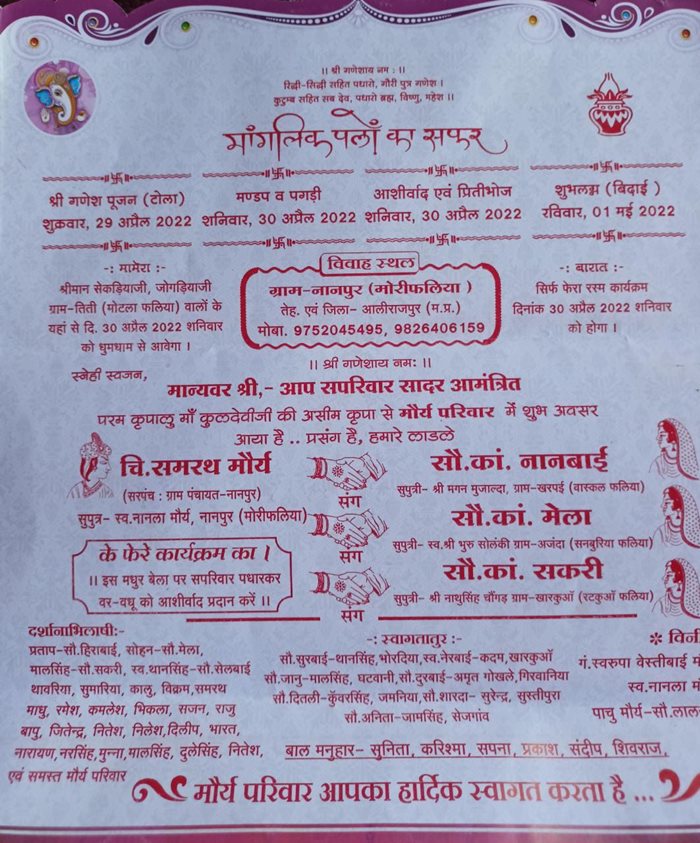 ।। श्री गणेशाय नमः ।।
रिद्धी-सिद्धी सहित पधारो, गौरी पुत्र गणेश ।
कुटुम्ब सहित सब देव, पधारो ब्रह्म, विष्णु, महेश ।।
मांगलिक पलों का सफर
श्री गणेश पूजन (टोला)
शुक्रवार, 29 अप्रैल 2022
मण्डप व पगड़ी
शनिवार, 30 अप्रैल 2022
आशीर्वाद एवं प्रितीभोज
शनिवार, 30 अप्रैल 2022
शुभलग्न (बिदाई )
रविवार, 01 मई 2022
-: मामेरा :-
श्रीमान सेकड़ियाजी, जोगड़ियाजी
ग्राम-तिती (मोटला फलिया) वालों के
यहां से दि. 30 अप्रैल 2022 शनिवार
को धुमधाम से आवेगा ।
विवाह स्थल
ग्राम-नानपुर (मोरीफलिया )
तेह. एवं जिला- आलीराजपुर (म.प्र.)
मोबा. 9752045495, 9826406159
-: बारात :-
सिर्फ फेरा रस्म कार्यक्रम
दिनांक 30 अप्रैल 2022 शनिवार
को होगा ।
।। श्री गणेशाय नमः ।।
स्नेही स्वजन,
मान्यवर श्री,- आप सपरिवार सादर आमंत्रित
परम कृपालु माँ कुलदेवीजी की असीम कृपा से मौर्य परिवार में शुभ अवसर
आया है .. प्रसंग है, हमारे लाडले
चि.समरथ मौर्य
(सरपंच : ग्राम पंचायत-नानपुर)
सुपुत्र- स्व.नानला मौर्य, नानपुर (मोरीफलिया)
संग
सौ.कां. नानबाई
सुपुत्री- श्री मगन मुजाल्दा, ग्राम-खरपई (वास्कल फलिया)
संग
सौ.कां. मेला
सुपुत्री- स्व.श्री भुरु सोलंकी ग्राम-अजंदा (सनबुरिया फलिया)
संग
सौ.कां. सकरी
सुपुत्री- श्री नाथुसिंह चौंगड़ ग्राम-खारकुआँ (रटकुआँ फलिया)
के फेरे कार्यक्रम का ।
।। इस मधुर बेला पर सपरिवार पधारकर
वर-वधू को आशीर्वाद प्रदान करें ।।
दर्शानाभिलाषी:-
प्रताप-सौ.हिराबाई, सोहन-सौ.मेला,
मालसिंह-सौ.सकरी, स्व.थानसिंह-सौ.सेलबाई
थावरिया, सुमारिया, कालु, विक्रम,समरथ
माधु, रमेश, कमलेश, भिकला, सजन, राजु
बापु, जितेन्द्र, नितेश, निलेश,दिलीप, भारत,
नारायण,नरसिंह,मुन्ना,मालसिंह, दुलेसिंह, नितेश,
एवं समस्त मौर्य परिवार
-: स्वागतातुर :-
सौ.सुरबाई-थानसिंह,भोरदिया,स्व.नेरबाई-कदम,खारकुआँ
सौ.जानु-मालसिंह, घटवानी,सौ.दुरबाई-अमृत गोखले,गिरवानिया
सौ.दितली-कुँवरसिंह, जमनिया,सौ.शारदा- सुरेन्द्र, सुस्तीपुरा
सौ.अनिता-जामसिंह, सेजगांव
बाल मनुहार- सुनिता, करिश्मा, सपना, प्रकाश, संदीप, शिवराज,
गं.स्वरुपा वेस्तीबाई
स्व.नानला
पाचु मौर्य-सौ.लाल
मौर्य परिवार आपका हार्दिक स्वागत करता है ...